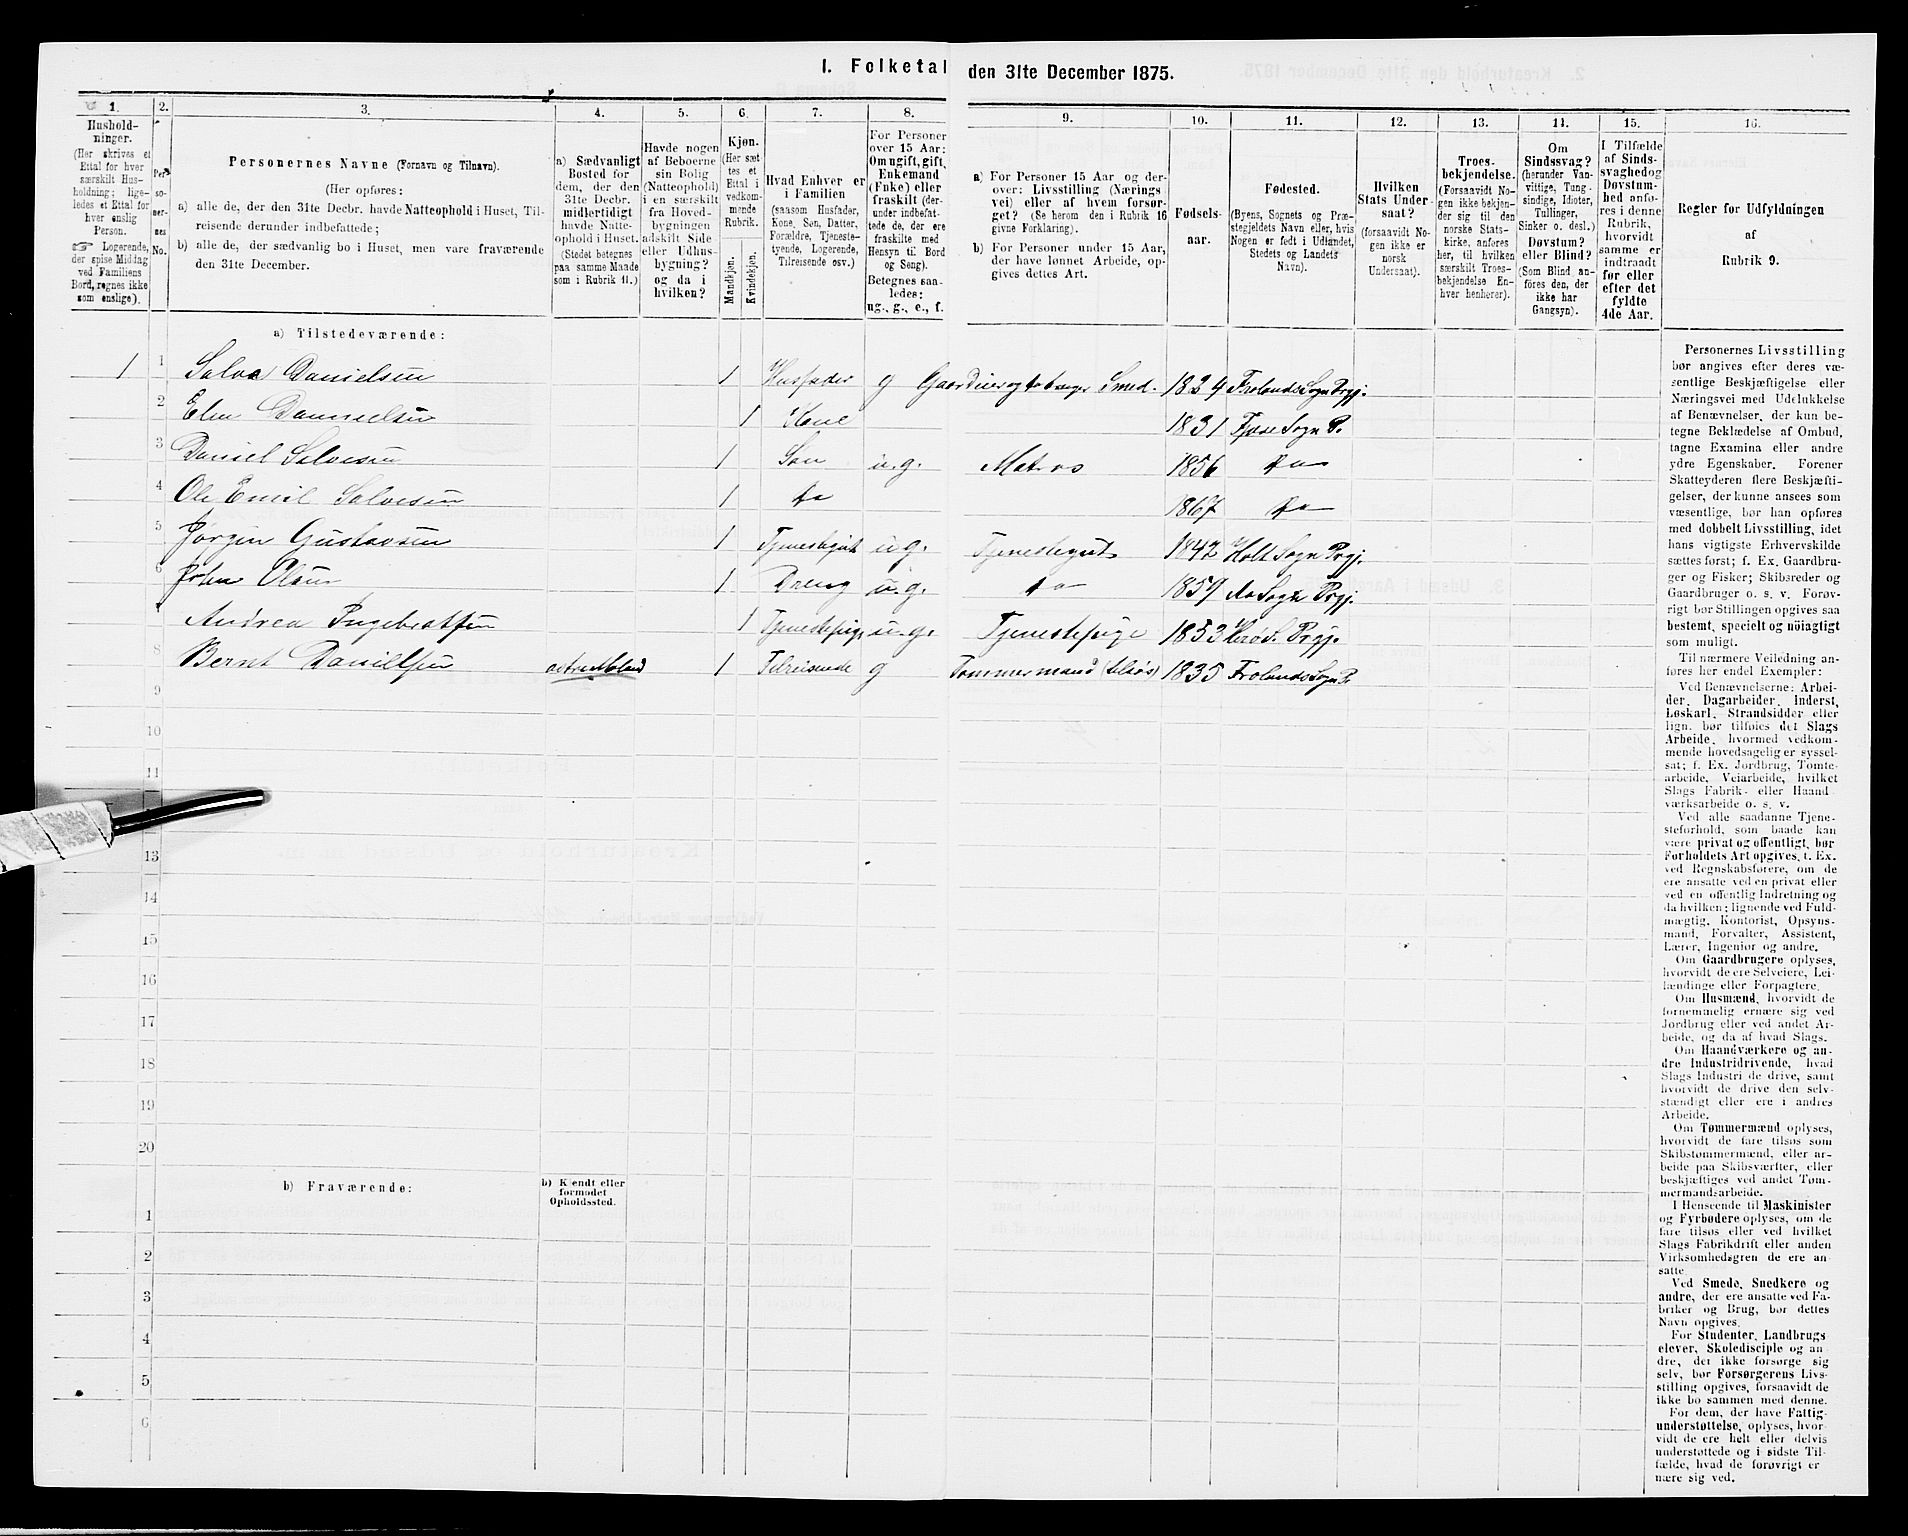 I. Folketal den 31te December 1875.
1. 2. 3. 4. 5. 6. 7. 8. 9. 10. 11. 12. 13. 14. 15. 16.
Hushold-
ninger.
(Her skrives et
Ettal for hver
særskilt Hus-
holdning; lige-
ledes et Ettal for
hver enslig
Person.
☞ Logerende,
der spise Middag
ved Familiens
Bord, regnes ikke
som enslige).
Per-
so-
ner-
nes
No.
Personernes Navne (Fornavn og Tilnavn).
(Her opføres:
a) alle de, der den 31te Decbr. havde Natteophold i Huset, Til-
reisende derunder indbefattede;
b) alle de, der sædvanlig bo i Huset, men vare fraværende
den 31te December.
a) Sædvanligt
Bosted for
dem, der den
31te Decbr.
midlertidigt
havde Natte-
ophold i Huset.
(Stedet betegnes
paa samme Maade
som i Rubrik 11.)
Havde nogen
af Beboerne
sin Bolig
(Natteophold)
i en særskilt
fra Hoved-
bygningen
adskilt Side
eller Udhus-
bygning?
og da i
hvilken?
Kjøn.
(Her sæt
tes et
Ettal i
vedkom-
mende
Rubrik.
Mandkjøn.
Kvindekjøn.
Hvad Enhver er
i Familien
(saasom Husfader,
Kone, Søn, Datter,
Forældre, Tjeneste-
tyende, Logerende,
Tilreisende osv.)
For Personer
over 15 Aar:
Om ugift, gift,
Enkemand
(Enke) eller
fraskilt (der-
under indbefat-
tede de, der ere
fraskilte med
Hensyn til Bord
og Seng).
Betegnes saa-
ledes:
ug., g., e., f.
a) For Personer 15 Aar og der-
over: Livsstilling (Nærings
vei) eller af hvem forsør-
get? (Se herom den i Rubrik 16
givne Forklaring).
b) For Personer under 15 Aar,
der have lønnet Arbeide, op-
gives dettes Art.
Fødsels-
aar.
Fødested.
(Byens, Sognets og Præ-
stegjeldets Navn eller, hvis
Nogen er født i Udlandet,
Stedets og Landets
Navn).
Hvilken
Stats Under-
saat?
(forsaavidt No-
gen ikke er
norsk
Undersaat).
Troes-
bekjendelse.
(Forsaavidt No-
gen ikke bekjen-
der sig til den
norske Stats-
kirke, anføres
her, til hvilken
særskilt Troes-
bekjendelse En-
hver henhører).
Om
Sindssvag?
(herunder Van-
vittige, Tung-
sindige, Idioter,
Tullinger,
Sinker o. desl.)
Døvstum?
eller Blind?
(Som Blind an-
føres den, der
ikke har
Gangsyn).
I Tilfælde
af Sinds-
svaghed og
Døvstum-
hed anfø-
res i denne
Rubrik,
hvorvidt
samme er
indtraadt
før eller
efter det
fyldte
4de Aar.
Regler for Udfyldningen
af
Rubrik 9.
a) Tilstedeværende:
1 1 Salve Danielsen 1 Husfader g Smed. 1824 Frolands Sogn Prgj.
2 Elen Dannielsen 1 Kone 1831 Fjære Sogn P.
3 Daniel Salvesen 1 Søn u.g. Matros 1856 do
4 Ole Emil Salvesen 1 do 1867 do
5 Jørgen Gustavsen 1 Tjenestegut u.g. Tjenestegut 1842 Holt Sogn Prgj.
6 John Olsen 1 Dreng u.g. do 1859 Sogn Prgj.
7 Andrea Ingebretsen 1 Tjenestepige u.g. Tjenestepige 1853 Prgj.
8 Bernt Danielsen 1 Tilreisende g Tømmermand (tilsøs) 1835 Frolands Sogn P.
9
10
11
13
14
15
16
17
18
19
20
b) Fraværende:
b) Kjendt eller
formodet
Opholdssted.
1
2
3
4
5
6
Personernes Livsstilling
bør angives efter deres væ-
sentlige Beskjæftigelse eller
Næringsvei med Udelukkelse
af Benævnelser, der kun be-
tegne Beklædelse af Ombud,
tagne Examina eller andre
ydre Egenskaber. Forener
Skatteyderen flere Beskjæfti-
gelser, der kunne ansees som
væsentlige, bør han opføres
med dobbelt Livsstilling, idet
hans vigtigste Erhvervskilde
sættes først; f. Ex. Gaardbru-
ger og Fisker; Skibsreder og
Gaardbruger o. s. v. Forøv-
rigt bør Stillingen opgives saa
bestemt, specielt og nöiagtigt
som muligt.
Til nærmere Veiledning an-
føres her endel Exempler:
Ved Benævnelserne: Arbei-
der, Dagarbeider, Inderst,
Løskarl, Strandsidder eller
lign. bør tilføies det Slags
Arbeide, hvormed vedkom-
mende hovedsagelig er syssel-
sat; f. Ex. Jordbrug, Tomte-
arbeide, Veiarbeide, hvilket
Slags Fabrik- eller Haand
værksarbeide o. s. v.
Ved alle saadanne Tjene-
steforhold, som baade kan
være privat og offentligt, bør
Forholdets Art opgives, f. Ex.
ved Regnskabsførere, om de
ere ansatte ved en privat eller
ved en offentlig Indretning og
da hvilken; lignende ved Fuld-
mægtig, Kontorist, Opsyns-
mand, Forvalter, Assistent,
Lærer, Ingeniør og andre.
Om Gaardbrugere oplyses,
hvorvidt de ere Selveiere, Lei-
lændinge eller Forpagtere.
Om Husmænd, hvorvidt de
fornemmelig ernære sig ved
Jordbrug eller ved andet Ar-
beide, og da af hvad Slags.
Om Haandværkere og an-
dre Industridrivende, hvad
Slags Industri de drive, samt
hvorvidt de drive den selv-
stændigt eller ere i andres
Arbeide.
Om Tømmermænd oplyses,
hvorvidt de fare tilsøs som
Skibstømmermænd, eller ar-
beide paa Skibsværfter, eller
beskjæftiges ved andet Tøm-
mermandsarbeide.
I Henseende til Maskinister
og Fyrbødere oplyses, om de
fare tilsøs eller ved hvilket
Slags Fabrikdrift eller anden
Virksomhedsgren de ere an-
satte.
Ved Smede, Snedkere og
andre, der ere ansatte ved Fa-
briker og Brug, bør dettes
Navn opgives.
For Studenter, Landbrugs
elever, Skoledisciple og an
dre, der ikke forsørge sig
selv, bør Forsørgerens Livs-
stilling opgives, forsaavidt de
ikke bo sammen med denne.
For dem, der have Fattig-
understøttelse, oplyses, hvor-
vidt de ere helt eller delvis
understøttede og i sidste Til-
fælde, hvad de forøvrigt er
nære sig ved.